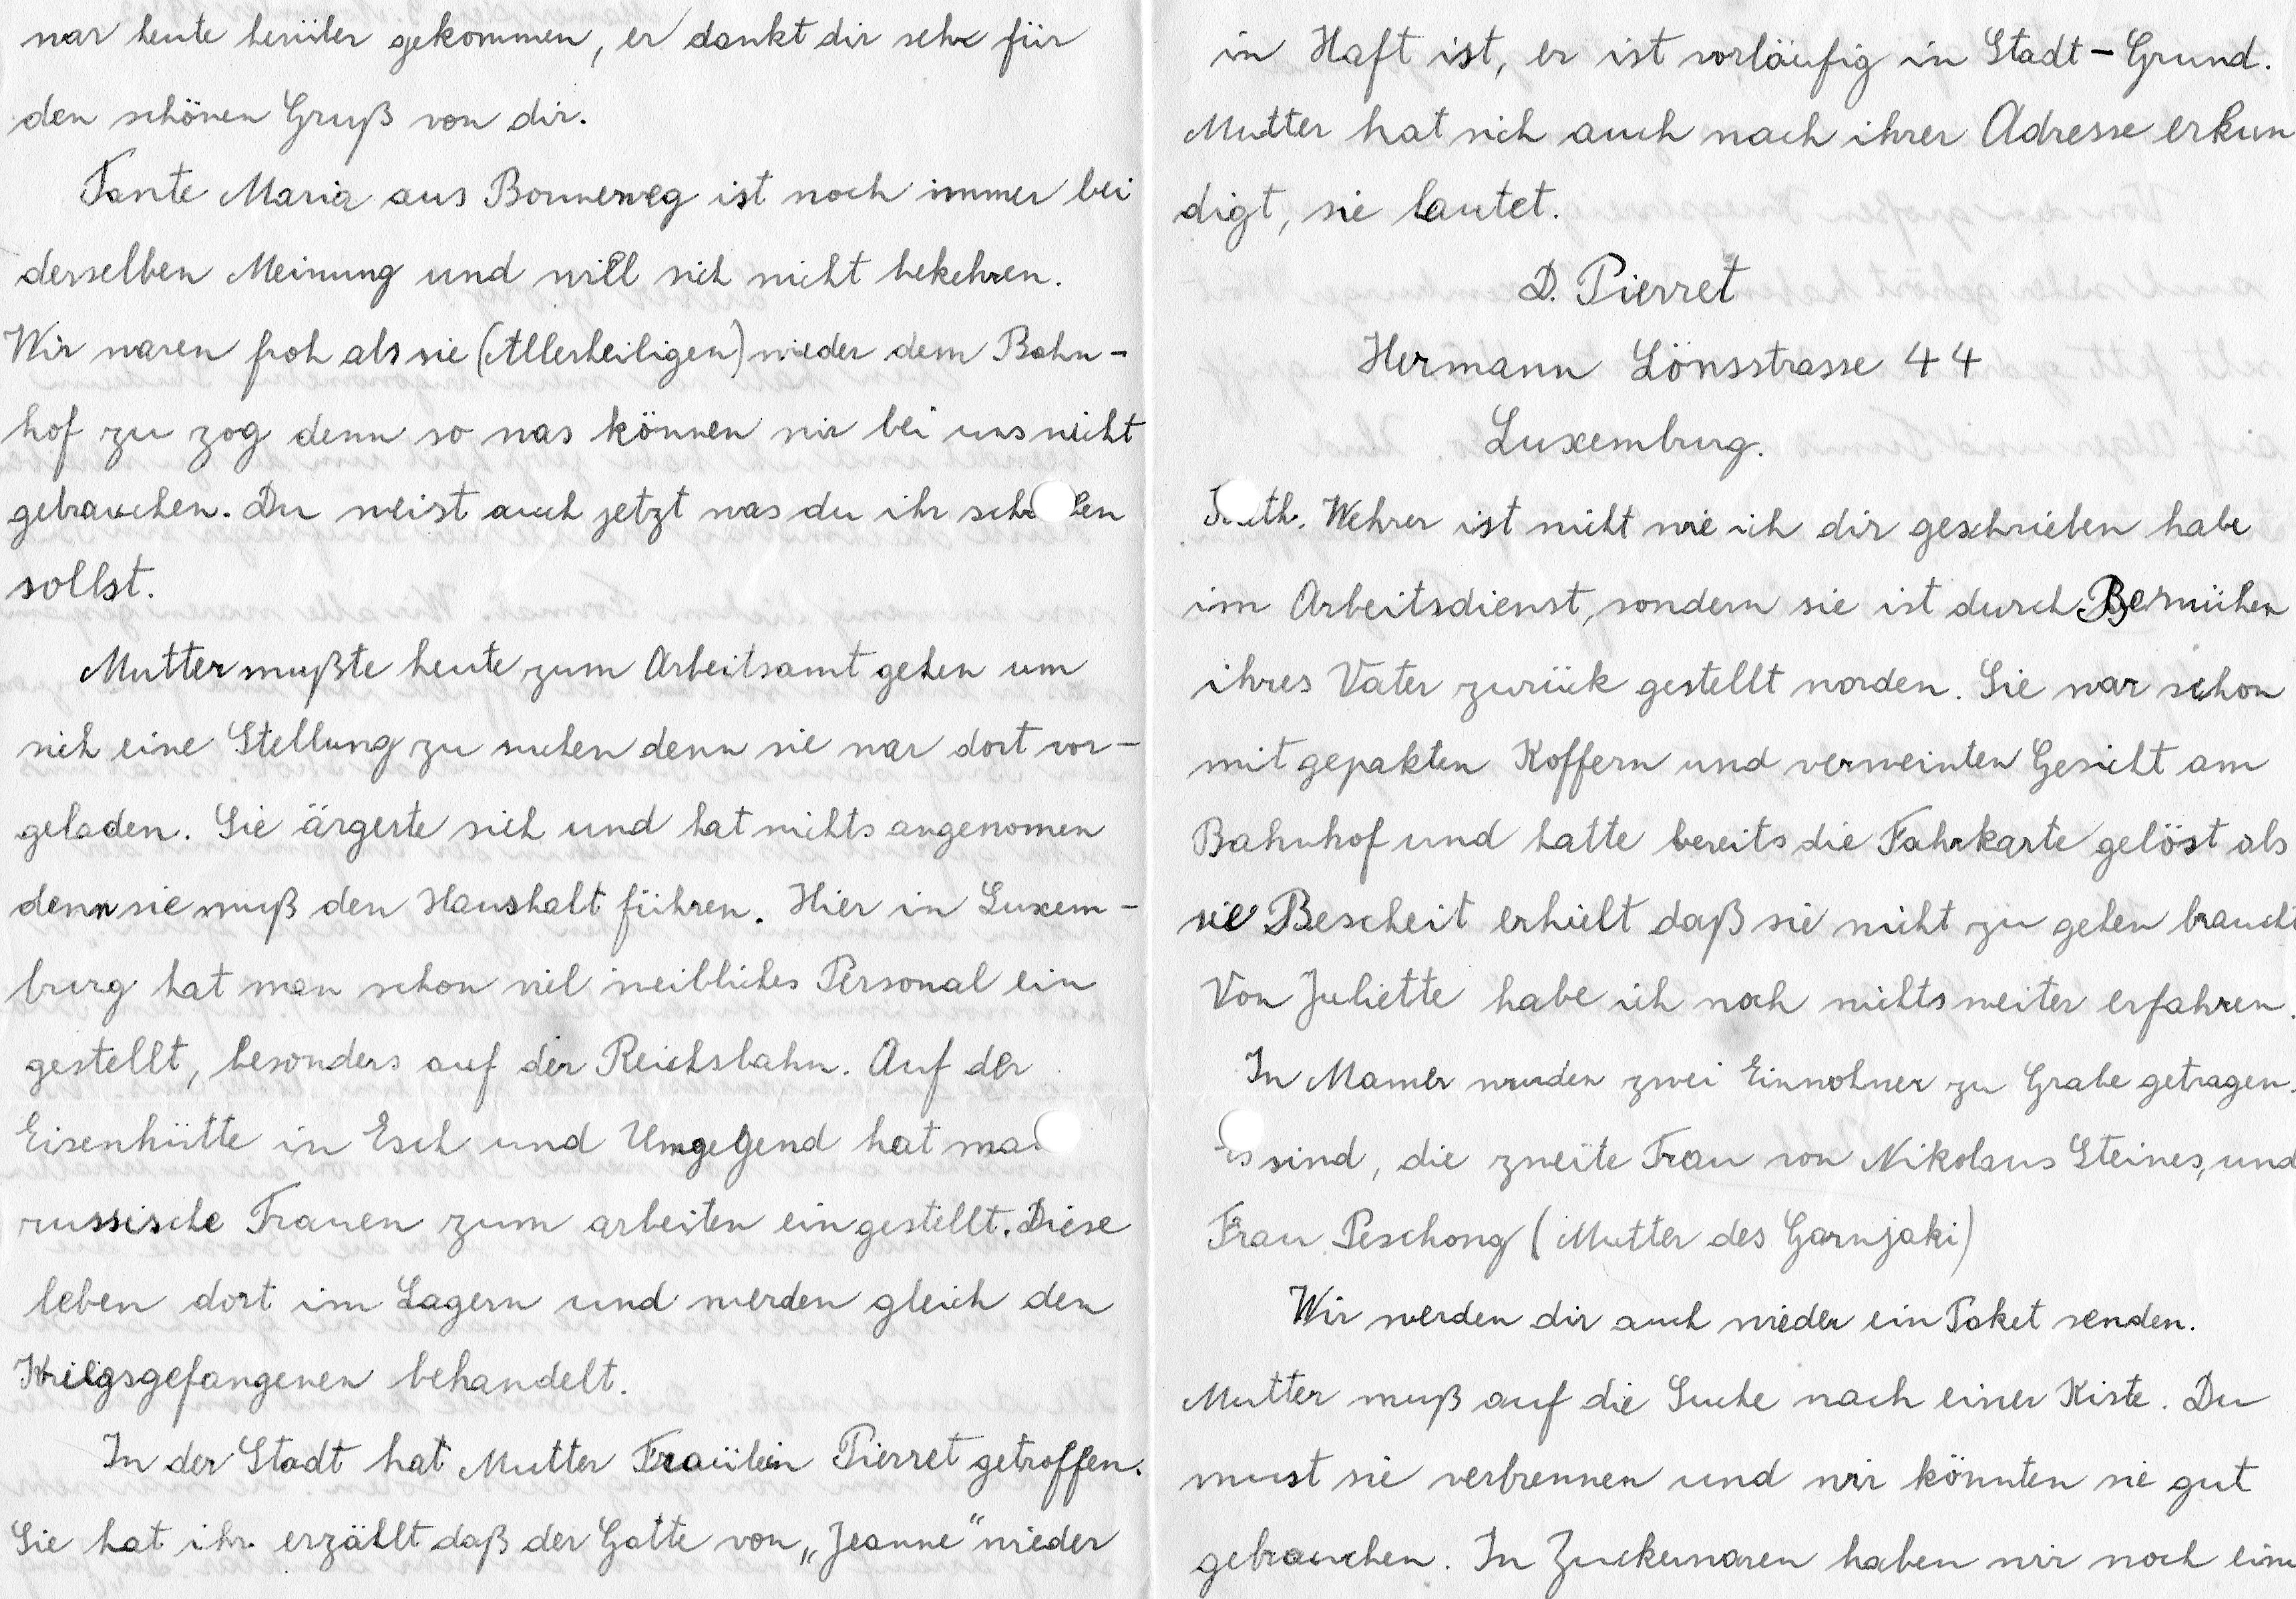 war heute herüber gekommen, er dankt dir sehr für
den schönen Gruß von dir.
Tante Maria aus Bonneweg ist noch immer bei
derselben Meinung und will sich nicht bekehren.
Wir waren froh als sie (Allerheiligen) wieder dem Bahn-
hof zu zog denn so was können wir bei uns nicht
gebrauchen. Du weist auch jetzt was du ihr schreiben
sollst.
Mutter mußte heute zum Arbeitsamt gehen um
sich eine Stellung zu suchen denn sie war dort vor-
geladen. Sie ärgerte sich und hat nichts angenomen
denn sie muß den Haushalt führen. Hier in Luxem-
burg hat man schon viel weibliches Personal ein
gestellt, besonders auf der Reichsbahn. Auf der
Eisenhütte in Esch und Umgegend hat man
russische Frauen zum arbeiten eingestellt. Diese
leben dort im Lagern und werden gleich den
Kriegsgefangenen behandelt.
In der Stadt hat Mutter Fraülein Pierret getroffen.
Sie hat ihr erzählt daß der Gatte von „Jeanne" wieder
in Haft ist, er ist vorläufig in Stadt-Grund.
Mutter hat sich auch nach ihrer Adresse erkun
digt, sie lautet.
D. Pierret
Hermann Lönsstrasse 44
Luxemburg.
Wehrer ist nicht wie ich dir geschrieben habe
im Arbeitsdienst, sondern sie ist durch Bemühen
ihres Vater zurück gestellt worden. Sie war schon
mit gepakten Koffern und verweinten Gesicht am
Bahnhof und hatte bereits die Fahrkarte gelöst als
sie Bescheit erhielt daß sie nicht zu gehen braucht
Von Juliette habe ich noch nichts weiter erfahren.
In Mamer wurden zwei Einwohner zu Grabe getragen.
Es sind, die zweite Frau von Nikolaus Steines, und
Frau Peschong (Mutter des Garnjaki)
Wir werden dir auch wieder ein Paket senden.
Mutter muß auf die Suche nach einer Kiste. Du
must sie verbrennen und wir könnten sie gut
gebrauchen. In Zuckerwaren haben wir noch eine